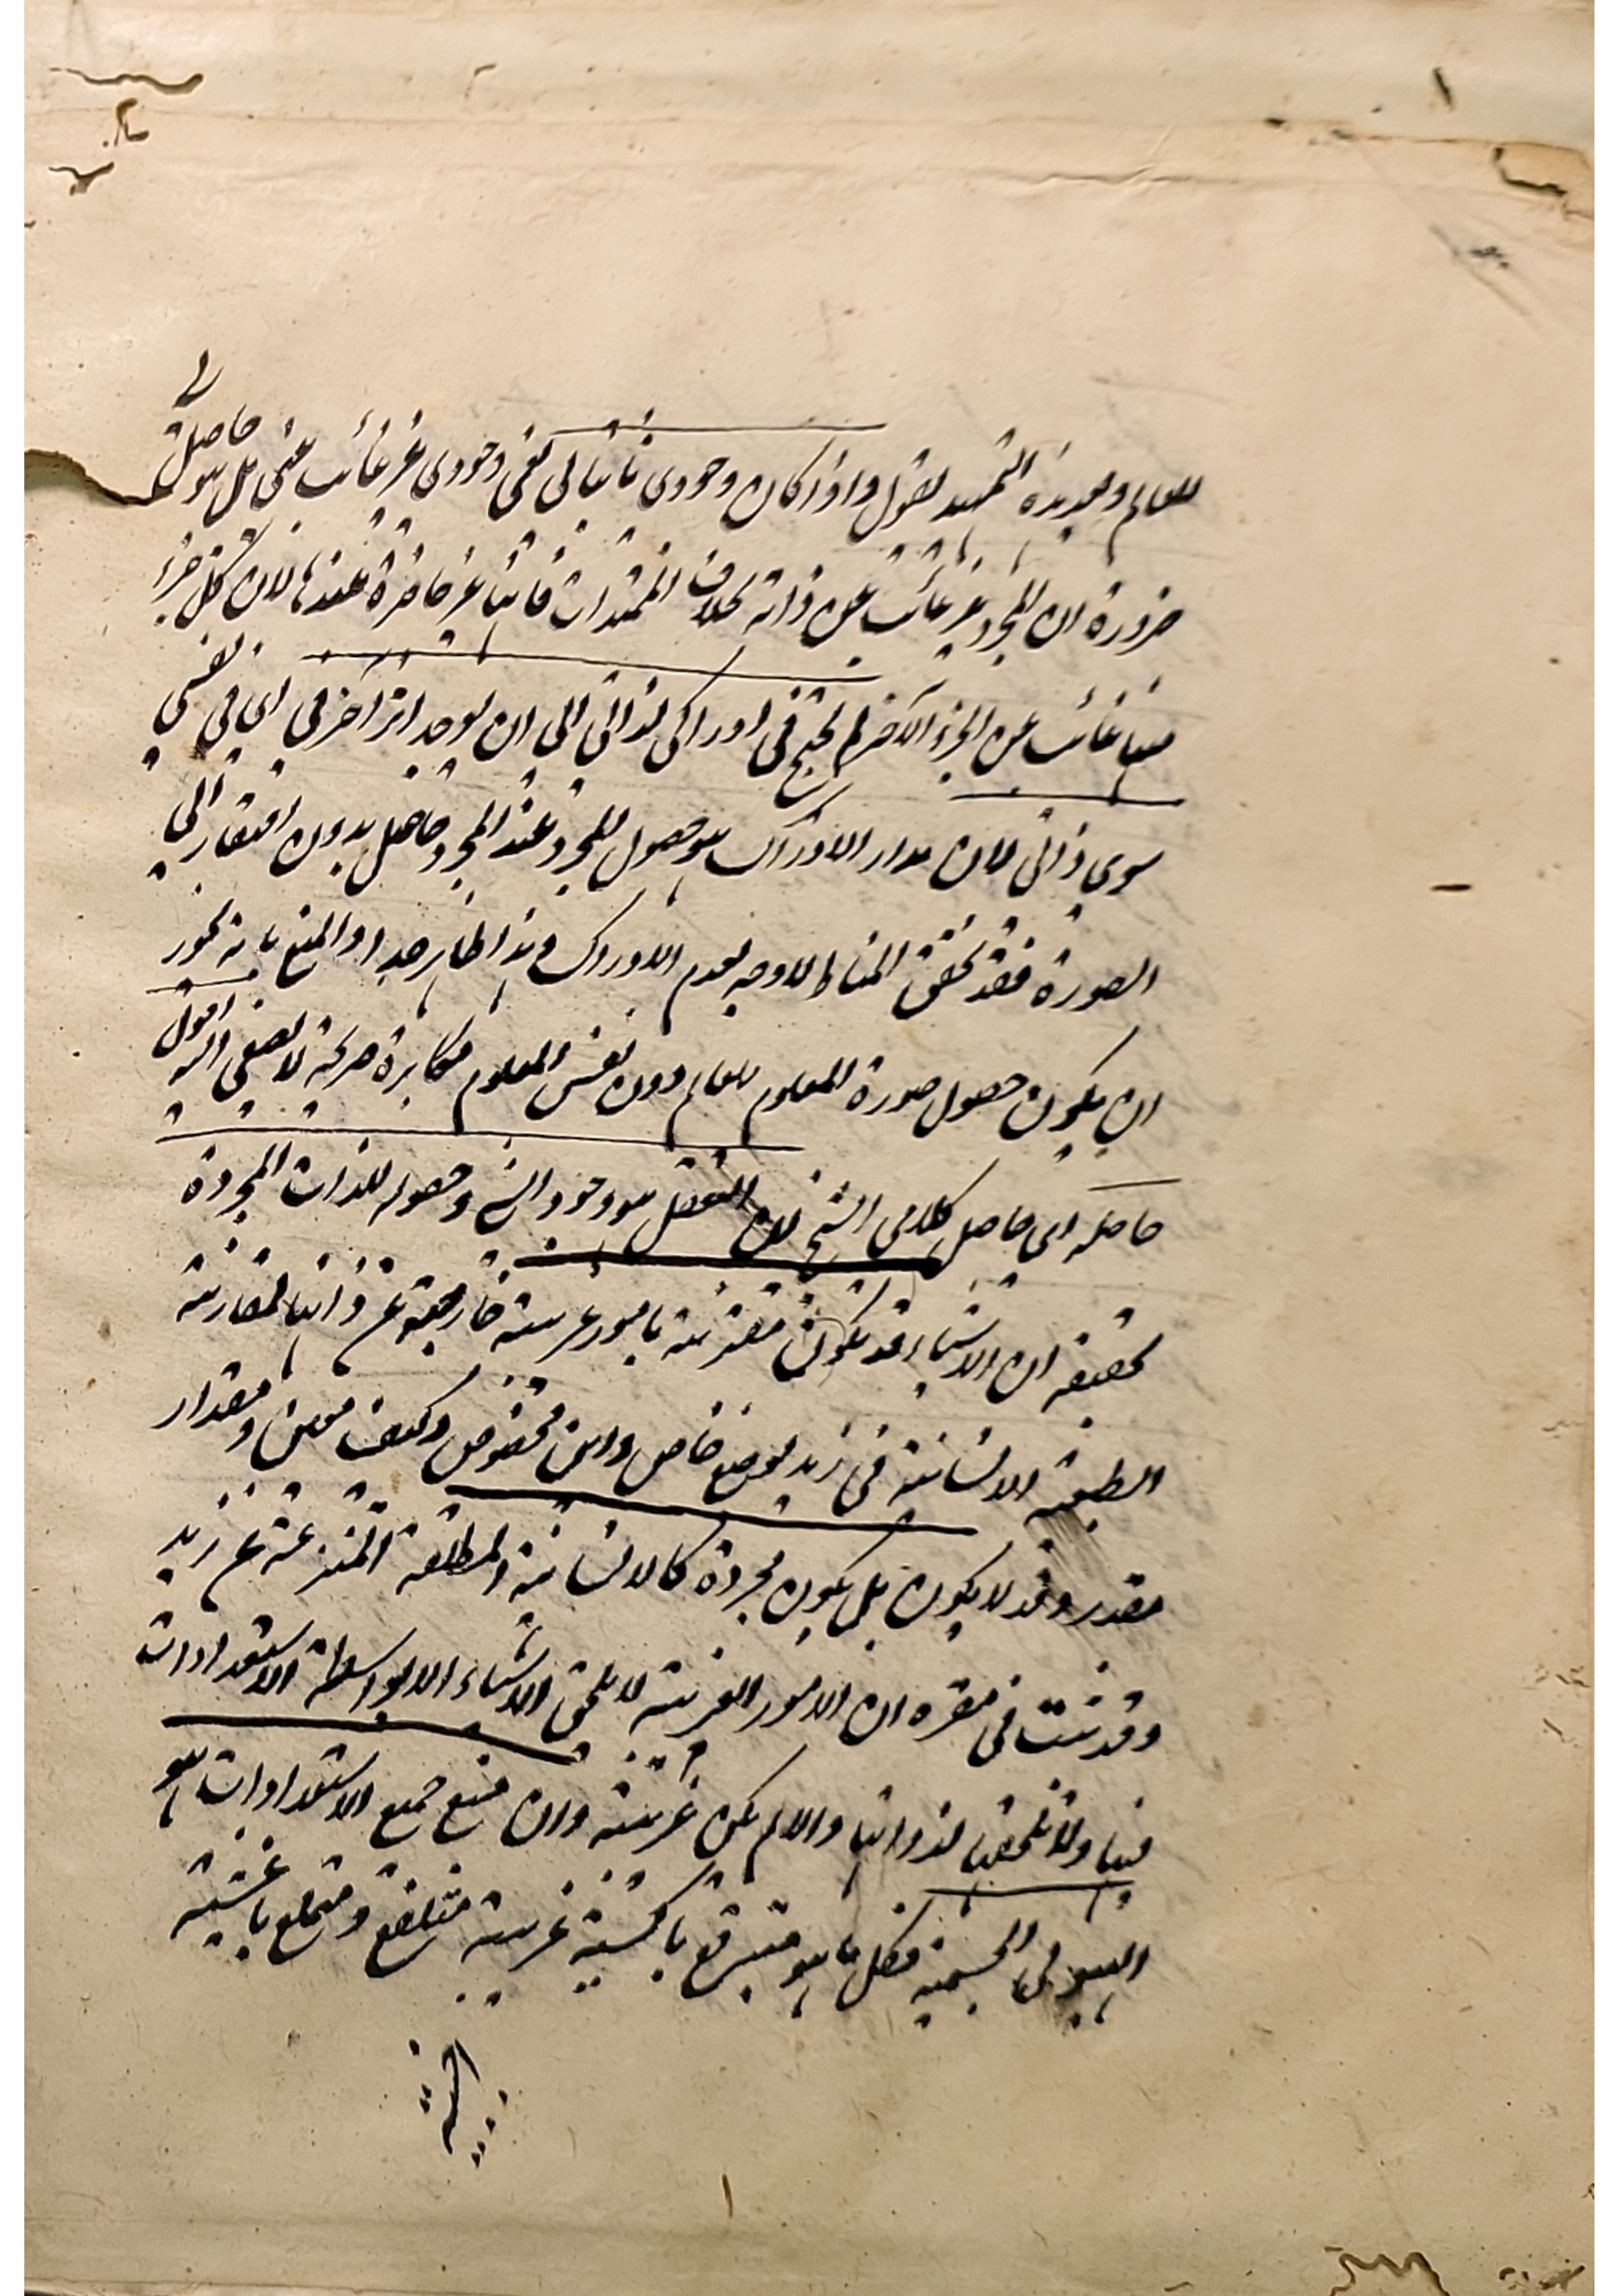 للعالم وبعد هذه التمهيد نقول واذا كان وجودى ثابتا لى نفى وجودى غير غائب عنى بل هو حاصل لى
ضرورة ان المجرد غير غائب عن ذاته بخلاف الممتدات فانها غير حاضرة عندها لان كل جزء
منها غائب عن الجزء الآخر لم احتج فى ادراكى لذاتى الى ان يوجد اثر آخر فى اى فى نفسى
سوى ذاتى لان مدار الادراك هو حصول المجرد عند المجرد حاصل بدون افتقار الى
الصورة فقد تحقق المناط لا وجه لعدم الادراك وهذا ظاهر جدا والمنع بانه يجوز
ان يكون حصول صورة المعلوم للعالم دون نفس المعلوم مكابرة صريحة لا يصغى اليه اقول
حاصله اى حاصل كلامى الشيخ ان التعقل هو وجود الشئ وحصوله للذات المجردة
تحقيقه ان الاشياء قد يكون مقترنة بامور غريبة خارجة عن ذاتها لمقارنة
الطبيعة الانسانية فى زيد بوضع خاص واين مخصوص وكيف معين ومقدار
مقدر وقد لا يكون بل يكون مجردة كالانسانية المطلقة المنتزعة عن زيد
وقد ثبت فى مقره ان الامور الغريبة لا يلحق الاشياء الا بواسطة الاستعدادات
فيها ولا تلحقها لذواتها والا لم يكن غريبة وان منبع جميع الاستعدادات هو
الهيولى الجسمية فكل ما هو متبرقع باكسية غريبة متلفع ومتقنع باغشية